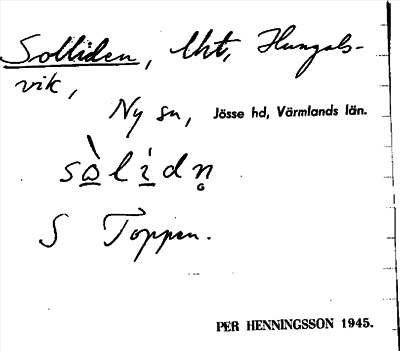 Solliden, lht, Hungals-
vik,
Ny sn, Jösse hd, Värmlands län.
sò̲li̲dn̥
S Toppen.
PER HENNINGSSON 1945.